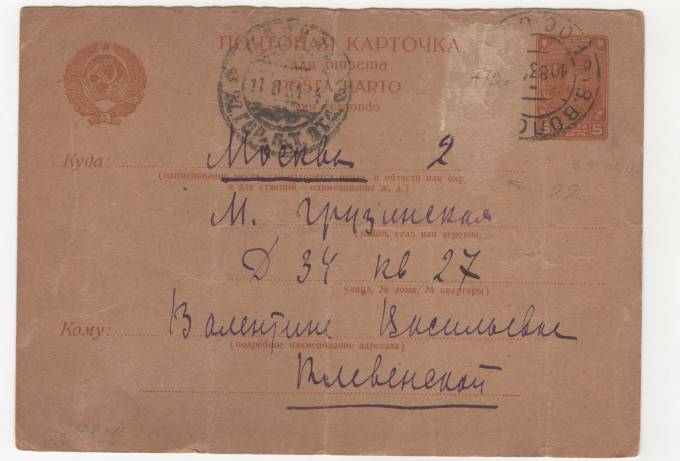 ПОЧТОВАЯ КАРТОЧКА
для ответа
POŜTA KARTO
por respondo
5
Куда: Москва 2
(наименование места, где находится почта, и области или окр.,
а для станций — наименование ж. д.)
М. Грузинская
(район, село или деревня,
Д 34 кв 27
улица, № дома, № квартиры)
Кому: Валентине Васильевне
(подробное наименование адресата)
Клевенской
22